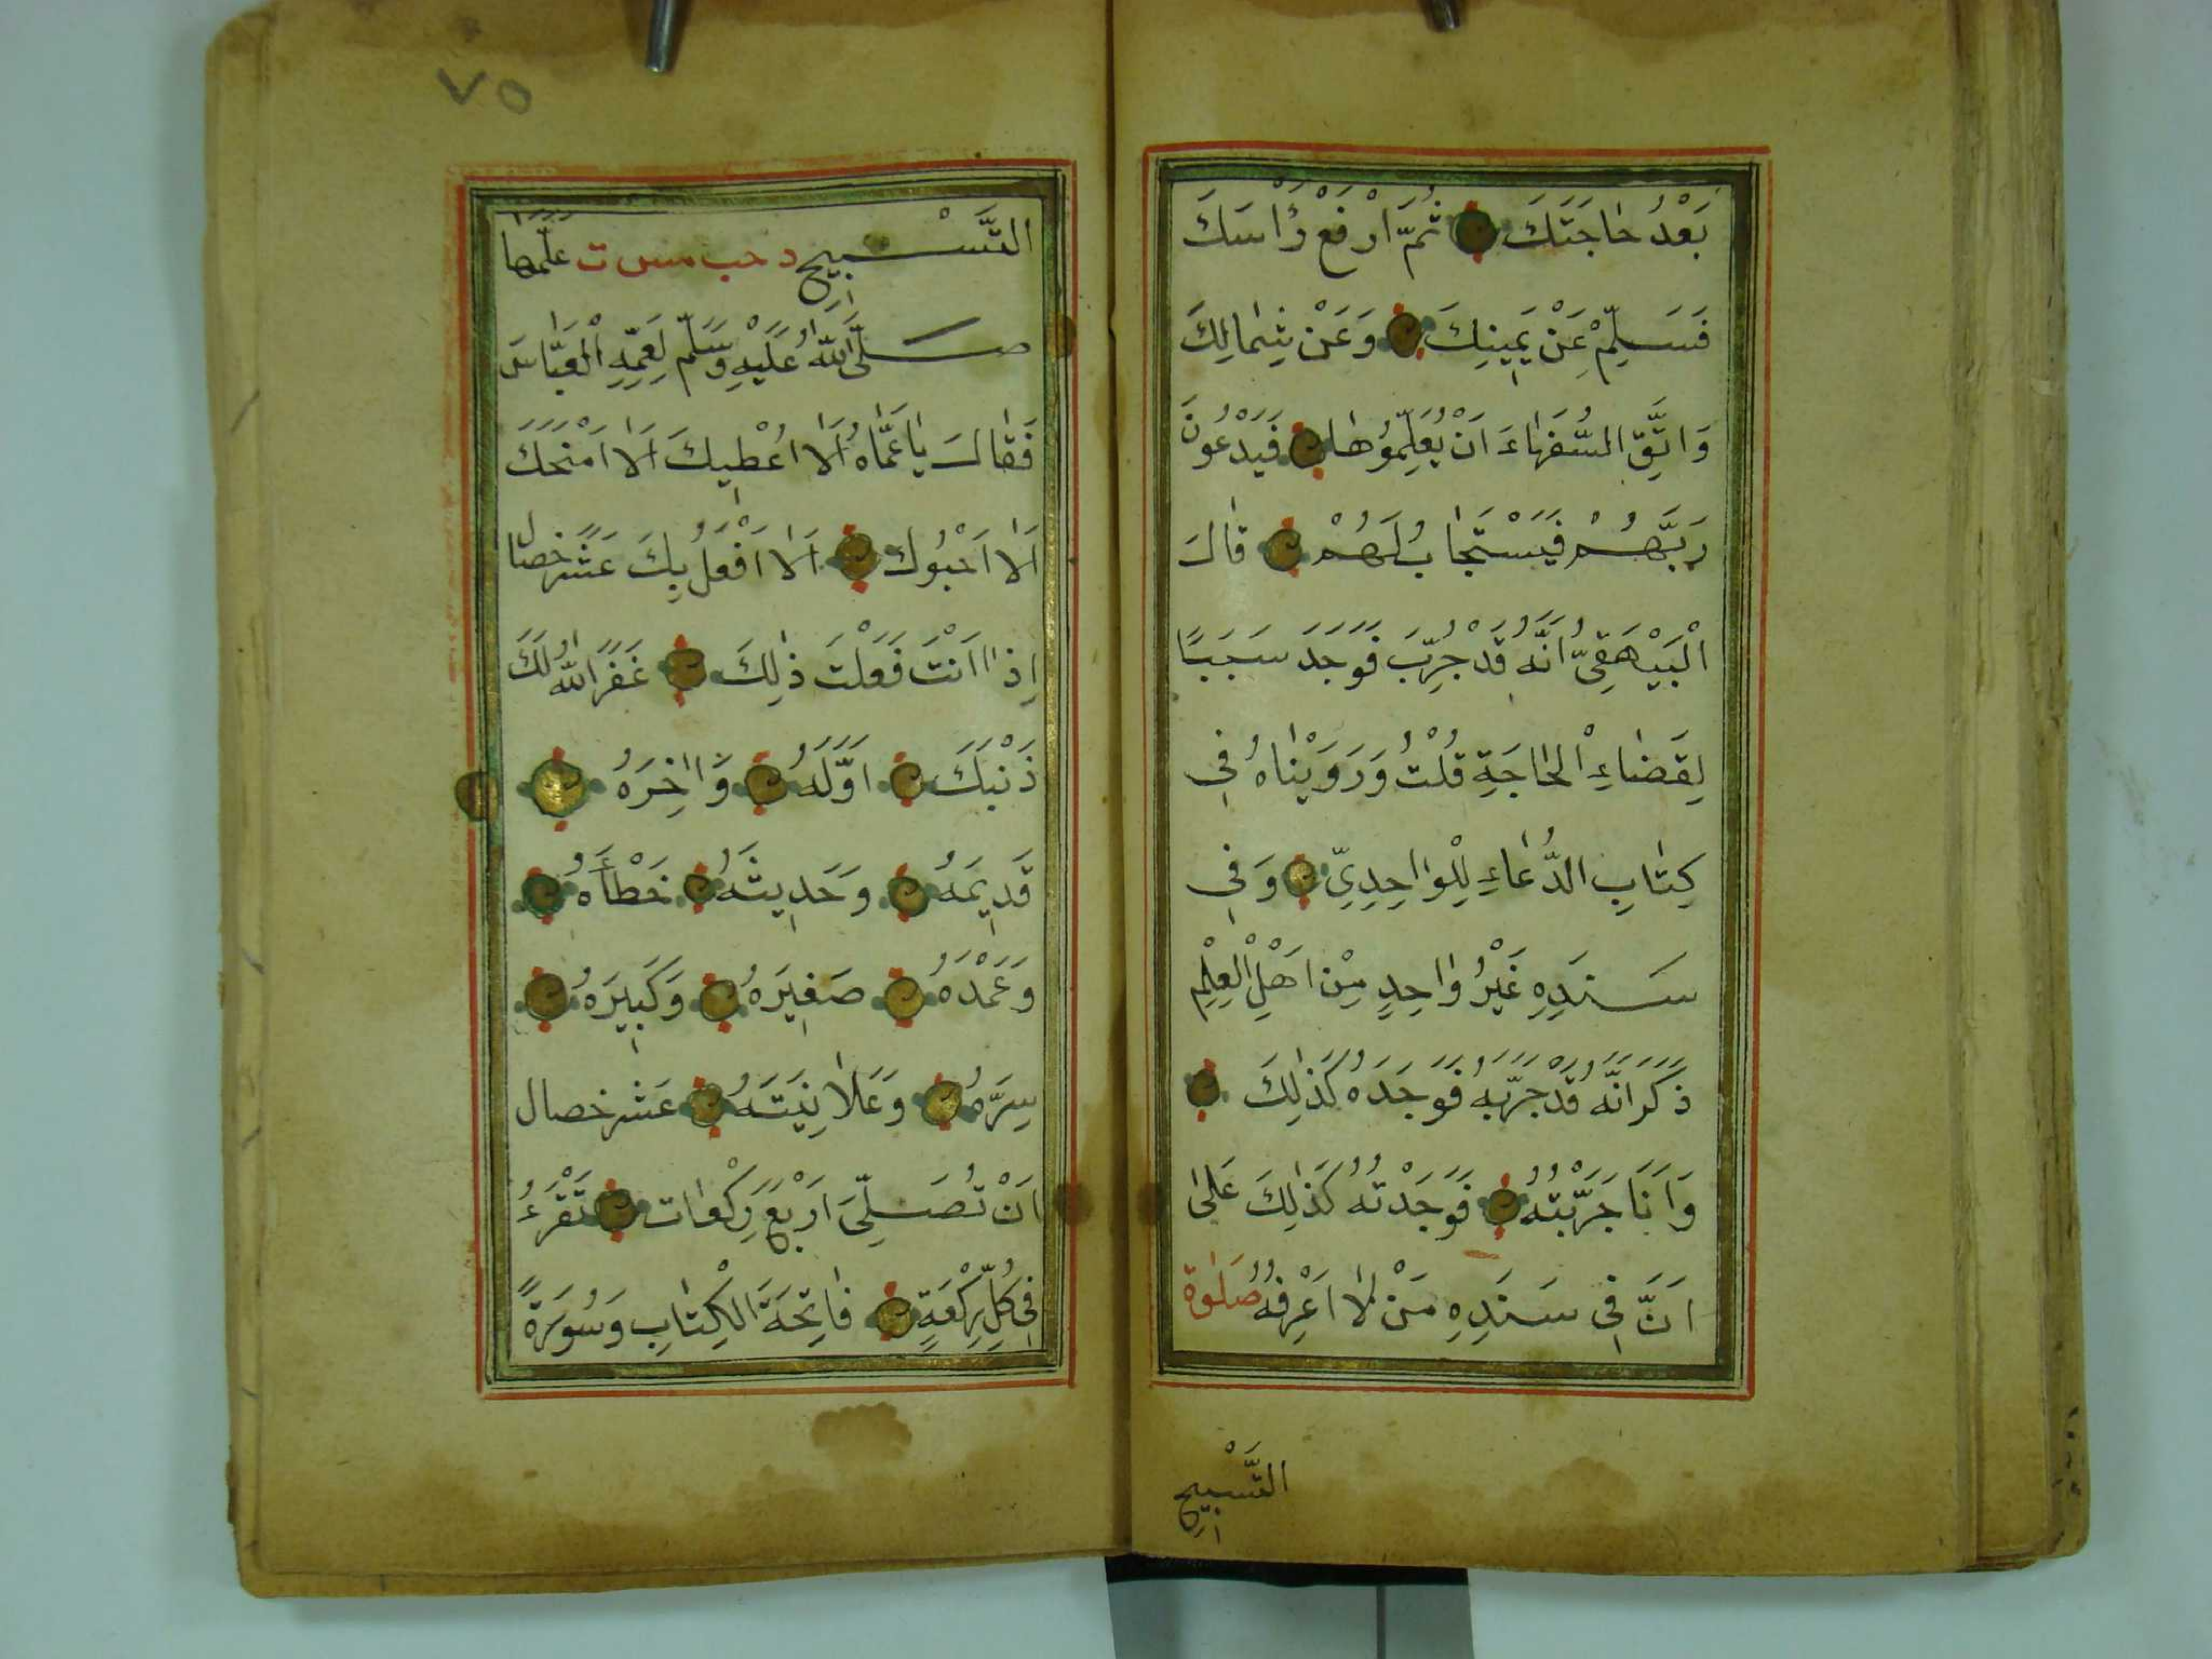 بَعْدُ حَاجَتَكَ ثُمَّ ارْفَعْ رَأْسَكَ
فَسَلِّمْ عَنْ يَمِينِكَ وَعَنْ شِمَالِكَ
وَاتَّقِ السُّفَهَاءَ اَنْ يُعَلِّمُوهَا فَيَدْعُونَ
رَبَّهُمْ فَيُسْتَجَابُ لَهُمْ قَالَ
الْبَيْهَقِىُّ اِنَّهُ قَدْ جُرِّبَ فَوُجِدَ سَبَبًا
لِقَضَاءِ الْحَاجَةِ قُلْتُ وَرَوَيْنَاهُ فِى
كِتَابِ الدُّعَاءِ لِلْوَاحِدِىِّ وَفِى
سَنَدِهِ غَيْرُ وَاحِدٍ مِنْ اَهْلِ الْعِلْمِ
ذَكَرَ اَنَّهُ قَدْ جَرَّبَهُ فَوَجَدَهُ كَذٰلِكَ
وَاَنَا جَرَّبْتُهُ فَوَجَدْتُهُ كَذٰلِكَ عَلٰى
اَنَّ فِى سَنَدِهِ مَنْ لَا اَعْرِفُهُ صَلٰوةُ
التَّسْبِيحِ
٧٥
التَّسْبِيحِ د حب مس ت عَلَّمَهَا
صَلَّى اللّٰهُ عَلَيْهِ وَسَلَّمَ لِعَمِّهِ الْعَبَّاسَ
فَقَالَ يَا عَمَّاهُ اَلَا اُعْطِيكَ اَلَا اَمْنَحُكَ
اَلَا اَحْبُوكَ اَلَا اَفْعَلُ بِكَ عَشْرَ خِصَالٍ
اِذَا اَنْتَ فَعَلْتَ ذٰلِكَ غَفَرَ اللّٰهُ لَكَ
ذَنْبَكَ اَوَّلَهُ وَاٰخِرَهُ
قَدِيمَهُ وَحَدِيثَهُ خَطَأَهُ
وَعَمْدَهُ صَغِيرَهُ وَكَبِيرَهُ
سِرَّهُ وَعَلَانِيَتَهُ عَشْر خصال
اَنْ تُصَلِّىَ اَرْبَعَ رَكَعَات تَقْرَءُ
فِى كُلِّ رَكْعَةٍ فَاتِحَةَ الْكِتَابِ وَسُورَةً